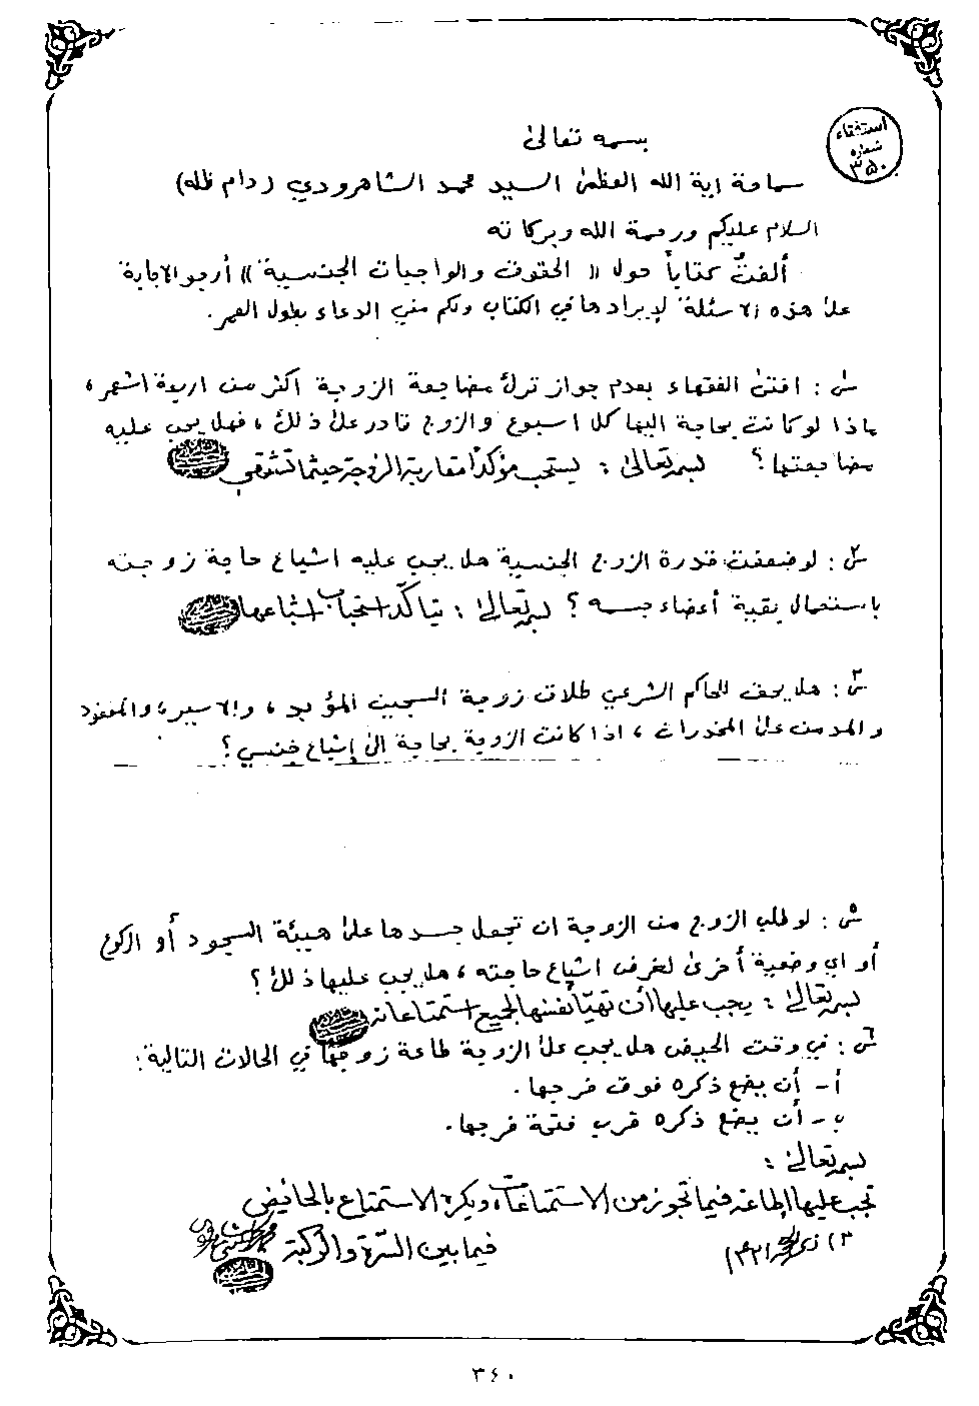 استفتاء
شماره
۳۵۰
بسمه تعالى
سماحة اية الله العظمى السيد محمد الشاهرودي (دام ظله)
السلام عليكم ورحمة الله وبركاته
ألفتُ كتاباً حول «الحقوق والواجبات الجنسية» أرجو الاجابة
على هذه الاسئلة لإيرادها في الكتاب ولكم مني الدعاء بطول العمر.
س١: افتى الفقهاء بعدم جواز ترك مضاجعة الزوجة اكثر من اربعة اشهر،
ماذا لو كانت بحاجة اليها كل اسبوع والزوج قادر على ذلك، فهل يجب عليه
مضاجعتها؟ بسمه تعالى: يستحب مؤكداً مقاربة الزوجة حيثما تشتهي
س٢: لو ضعفت قدرة الزوج الجنسية هل يجب عليه اشباع حاجة زوجته
باستعمال بقية أعضاء جسمه؟ بسمه تعالى: يتأكد استحباب اشباعها
س٣: هل يحق للحاكم الشرعي طلاق زوجة السجين المؤبد، والاسير، والمفقود
والمدمن على المخدرات، اذا كانت الزوجة بحاجة الى إشباع جنسي؟
س٥: لو طلب الزوج من الزوجة ان تجعل جسدها على هيئة السجود أو الركوع
أو اي وضعية أخرى لغرض اشباع حاجته، هل يجب عليها ذلك؟
بسمه تعالى: يجب عليها أن تهيّأ نفسها لجميع استمتاعاته
س٦: في وقت الحيض هل يجب على الزوجة طاعة زوجها في الحالات التالية:
أ- أن يضع ذكره فوق فرجها.
ب- أن يضع ذكره قرب فتحة فرجها.
بسمه تعالى:
تجب عليها إطاعته فيما تجوز من الاستمتاعات ويكره الاستمتاع بالحائض
فيما بين السّرة والركبة
٣٤٠